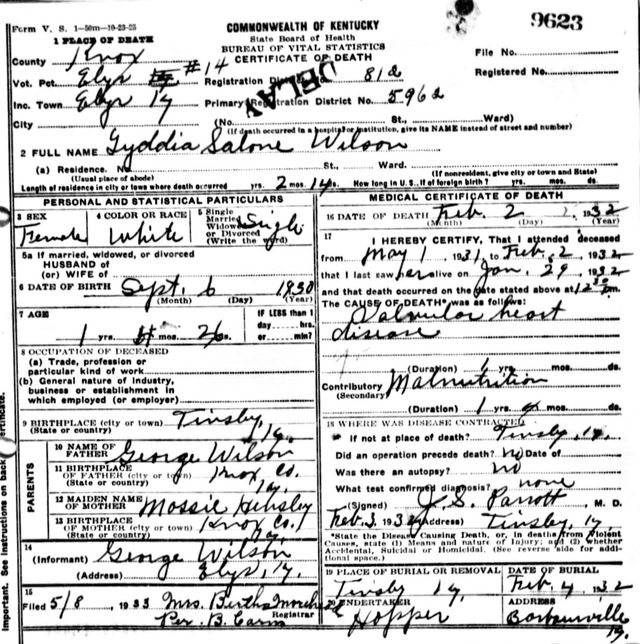 Form V. S. 1—50m—10-23-25
COMMONWEALTH OF KENTUCKY
State Board of Health
BUREAU OF VITAL STATISTICS
CERTIFICATE OF DEATH
9623
DELAY
1 PLACE OF DEATH
County Knox
File No.
Vot. Pct. Elys #14 Registration District 812 Registered No.
Inc. Town Elys Ky Primary Registration District No. 5962
City (No. St., Ward)
(If death occurred in a hospital or institution, give its NAME instead of street and number)
2 FULL NAME Lyddia Salone Wilson
(a) Residence. No. St., Ward.
(Usual place of abode) (If nonresident, give city or town and State)
Length of residence in city or town where death occurred yrs. 2 mos. 14 ds. How long in U. S., if of foreign birth? yrs. mos. ds.
PERSONAL AND STATISTICAL PARTICULARS
3 SEX Female
4 COLOR OR RACE White
5 Single Married Widowed or Divorced (Write the word) Single
5a If married, widowed, or divorced
HUSBAND of
(or) WIFE of
6 DATE OF BIRTH Sept. 6 1930
(Month) (Day) (Year)
7 AGE
1 yrs. mos. 26 ds.
IF LESS than 1 day, hrs. or min?
8 OCCUPATION OF DECEASED
(a) Trade, profession or particular kind of work
(b) General nature of industry, business or establishment in which employed (or employer)
9 BIRTHPLACE (city or town) Tinsley,
(State or country) Ky.
PARENTS
10 NAME OF FATHER George Wilson
11 BIRTHPLACE OF FATHER (city or town) Knox Co.
(State or country) Ky.
12 MAIDEN NAME OF MOTHER Mossie Hensley
13 BIRTHPLACE OF MOTHER (city or town) Knox Co.
(State or country) Ky.
14
(Informant) George Wilson
(Address) Elys, Ky.
15
Filed 5/8, 1933 Mrs. Bertha
Per. B. Registrar
MEDICAL CERTIFICATE OF DEATH
16 DATE OF DEATH Feb. 2 1932
(Month) (Day) (Year)
17
I HEREBY CERTIFY, That I attended deceased
from May 1, 1931, to Feb. 2, 1932
that I last saw her alive on Jan. 29, 1932
and that death occurred on the date stated above at 12 30 m.
The CAUSE OF DEATH* was as follows:
Valvular heart
disease
(Duration) 1 yrs. mos. ds.
Contributory Malnutrition
(Secondary)
(Duration) 1 yrs. mos. ds.
18 WHERE WAS DISEASE CONTRACTED
If not at place of death? Tinsley, Ky.
Did an operation precede death? No Date of
Was there an autopsy? No
What test confirmed diagnosis? none
(Signed) J. S. Parrott, M. D.
Feb. 3, 1932 (Address) Tinsley, Ky
*State the Disease Causing Death, or, in deaths from Violent Causes, state (1) Means and nature of Injury; and (2) whether Accidental, Suicidal or Homicidal. (See reverse side for additional space.)
19 PLACE OF BURIAL OR REMOVAL Tinsley Ky.
DATE OF BURIAL Feb. 4, 1932
20 UNDERTAKER Hopper
ADDRESS Barbourville Ky
Important. See instructions on back of certificate.